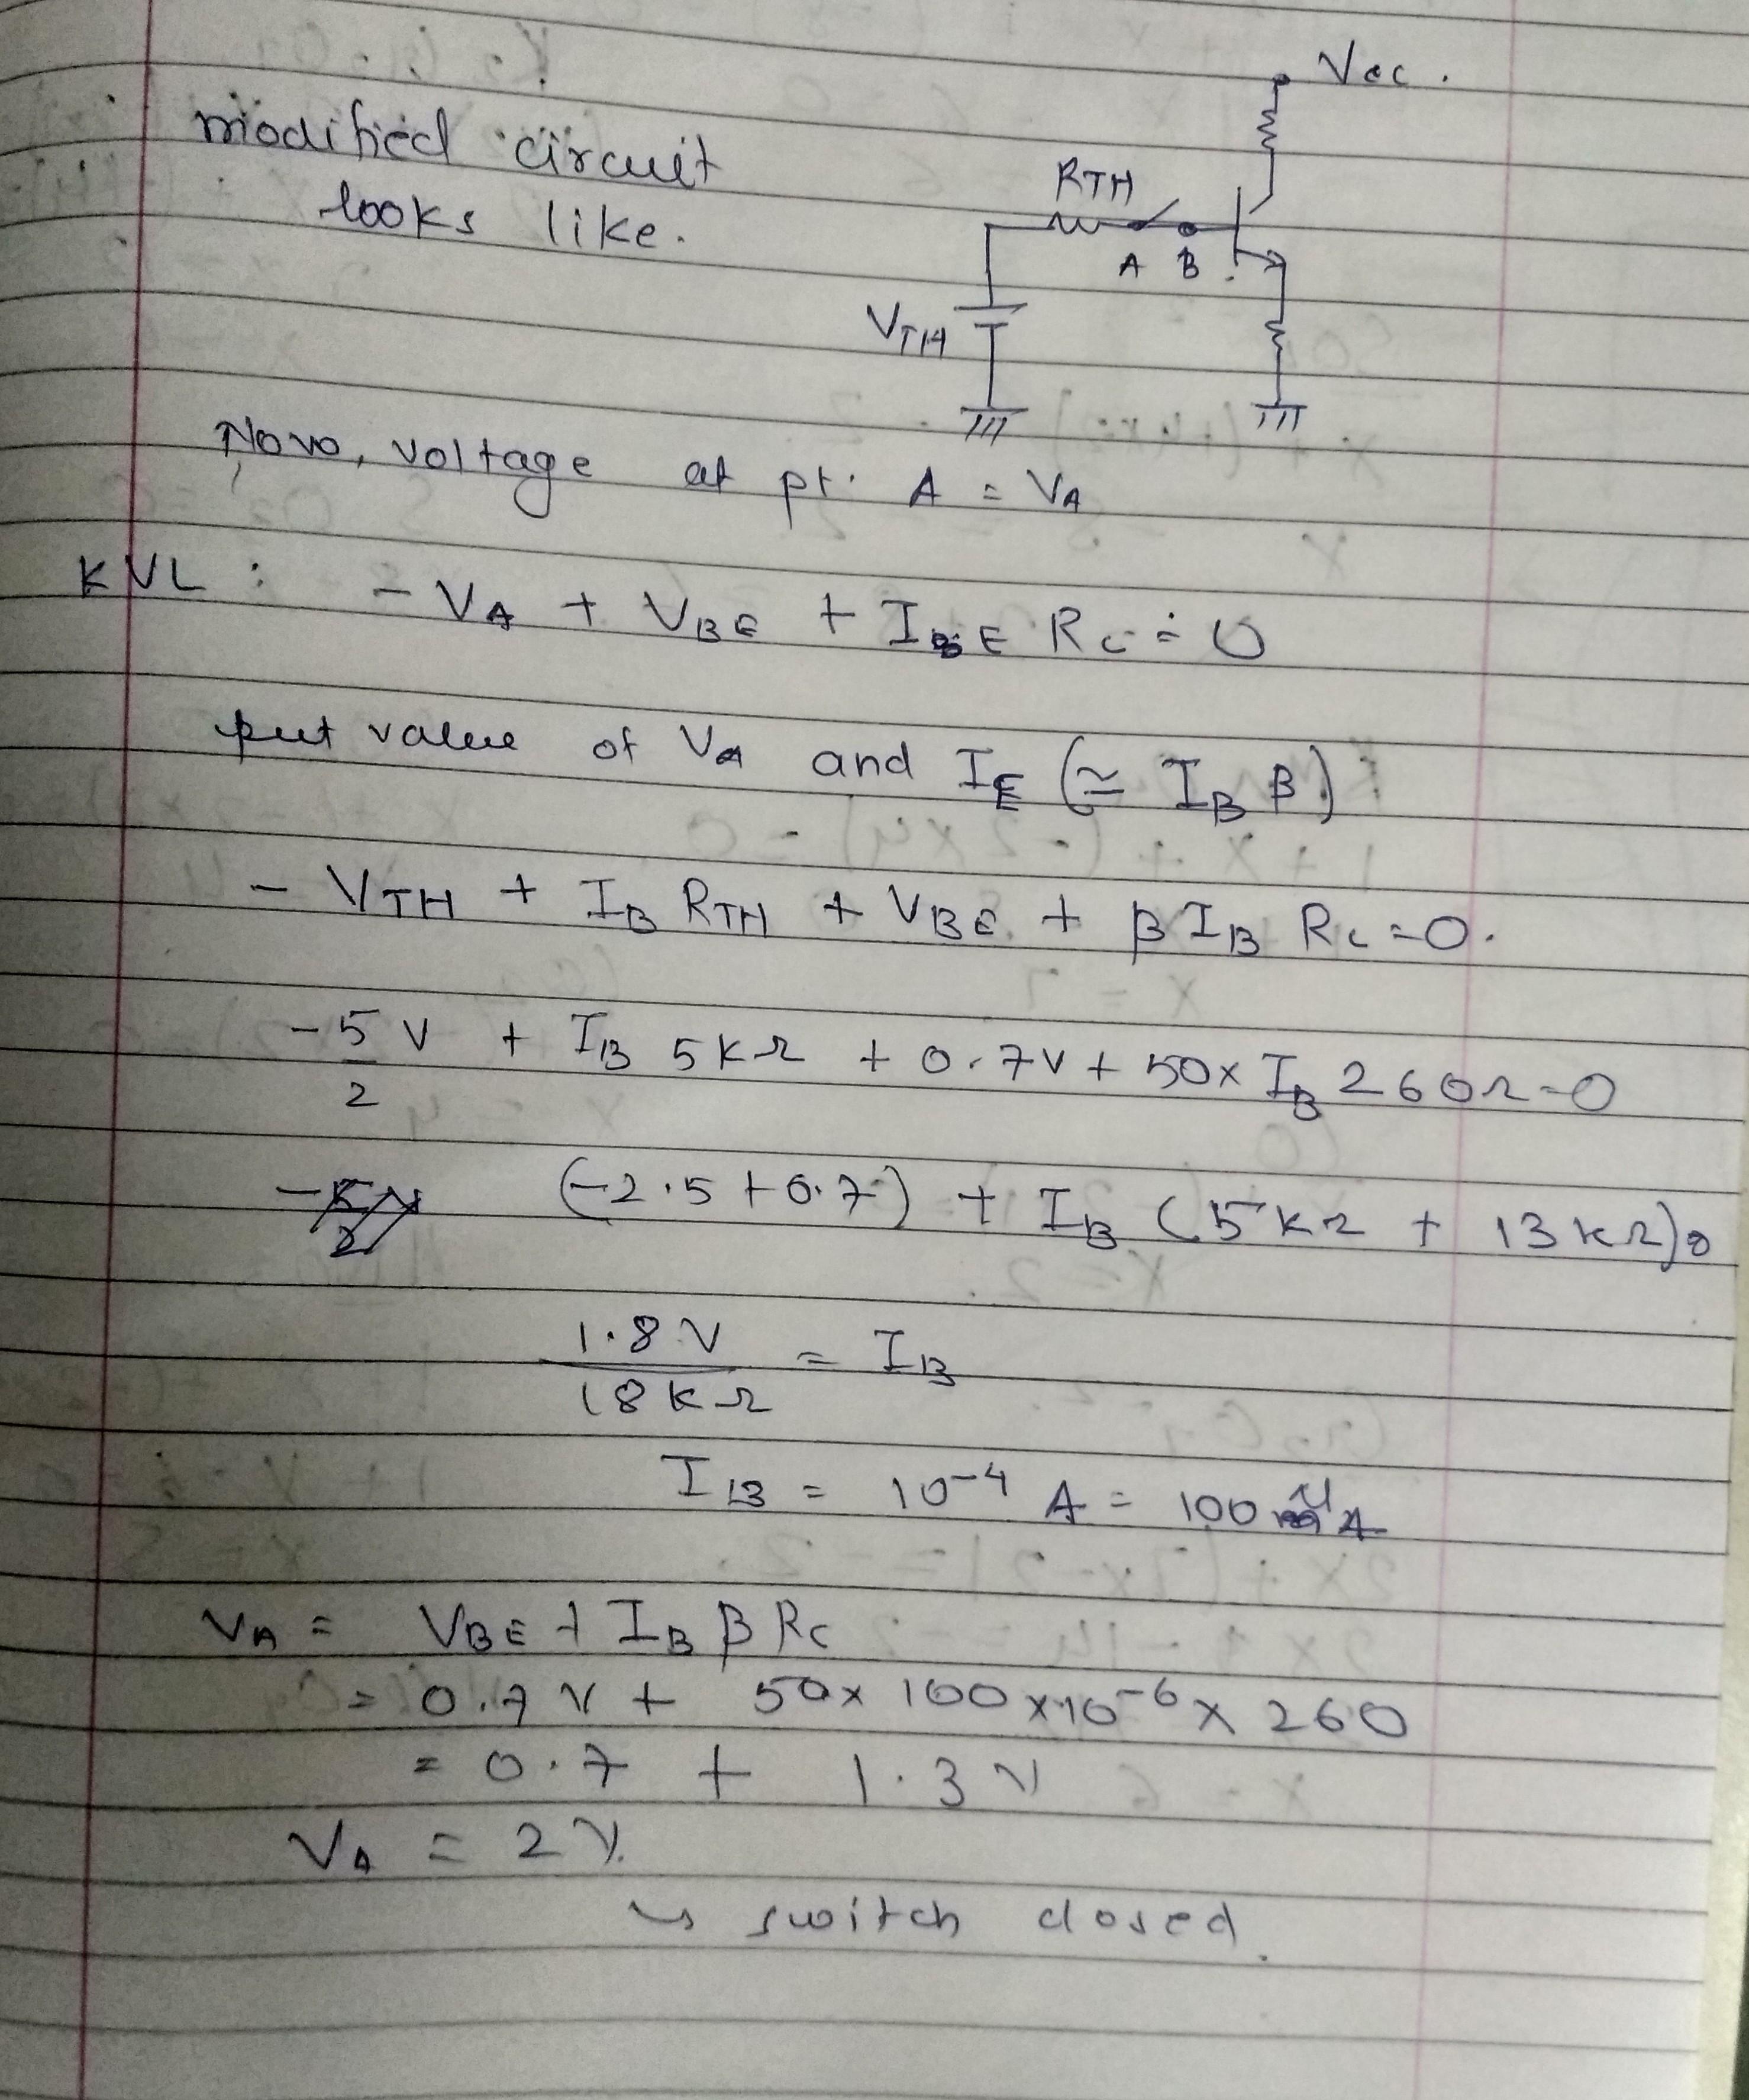 Vcc.
modified circuit
looks like.
RTH
A B
VTH
Now, voltage at pt. A = VA
KVL : - VA + VBE + IE RC = 0
put value of VA and IE (≃ IB β)
- VTH + IB RTH + VBE + β IB RC = 0.
-5/2 V + IB 5KΩ + 0.7V + 50x IB 260Ω = 0
(-2.5 + 0.7) + IB (5KΩ + 13KΩ) 0
1.8 V / 18 KΩ = IB
IB = 10⁻⁴ A = 100 μA
VA = VBE + IB β RC
= 0.7 V + 50x 100 x 10⁻⁶ x 260
= 0.7 + 1.3 V
VA = 2V.
↳ switch closed.